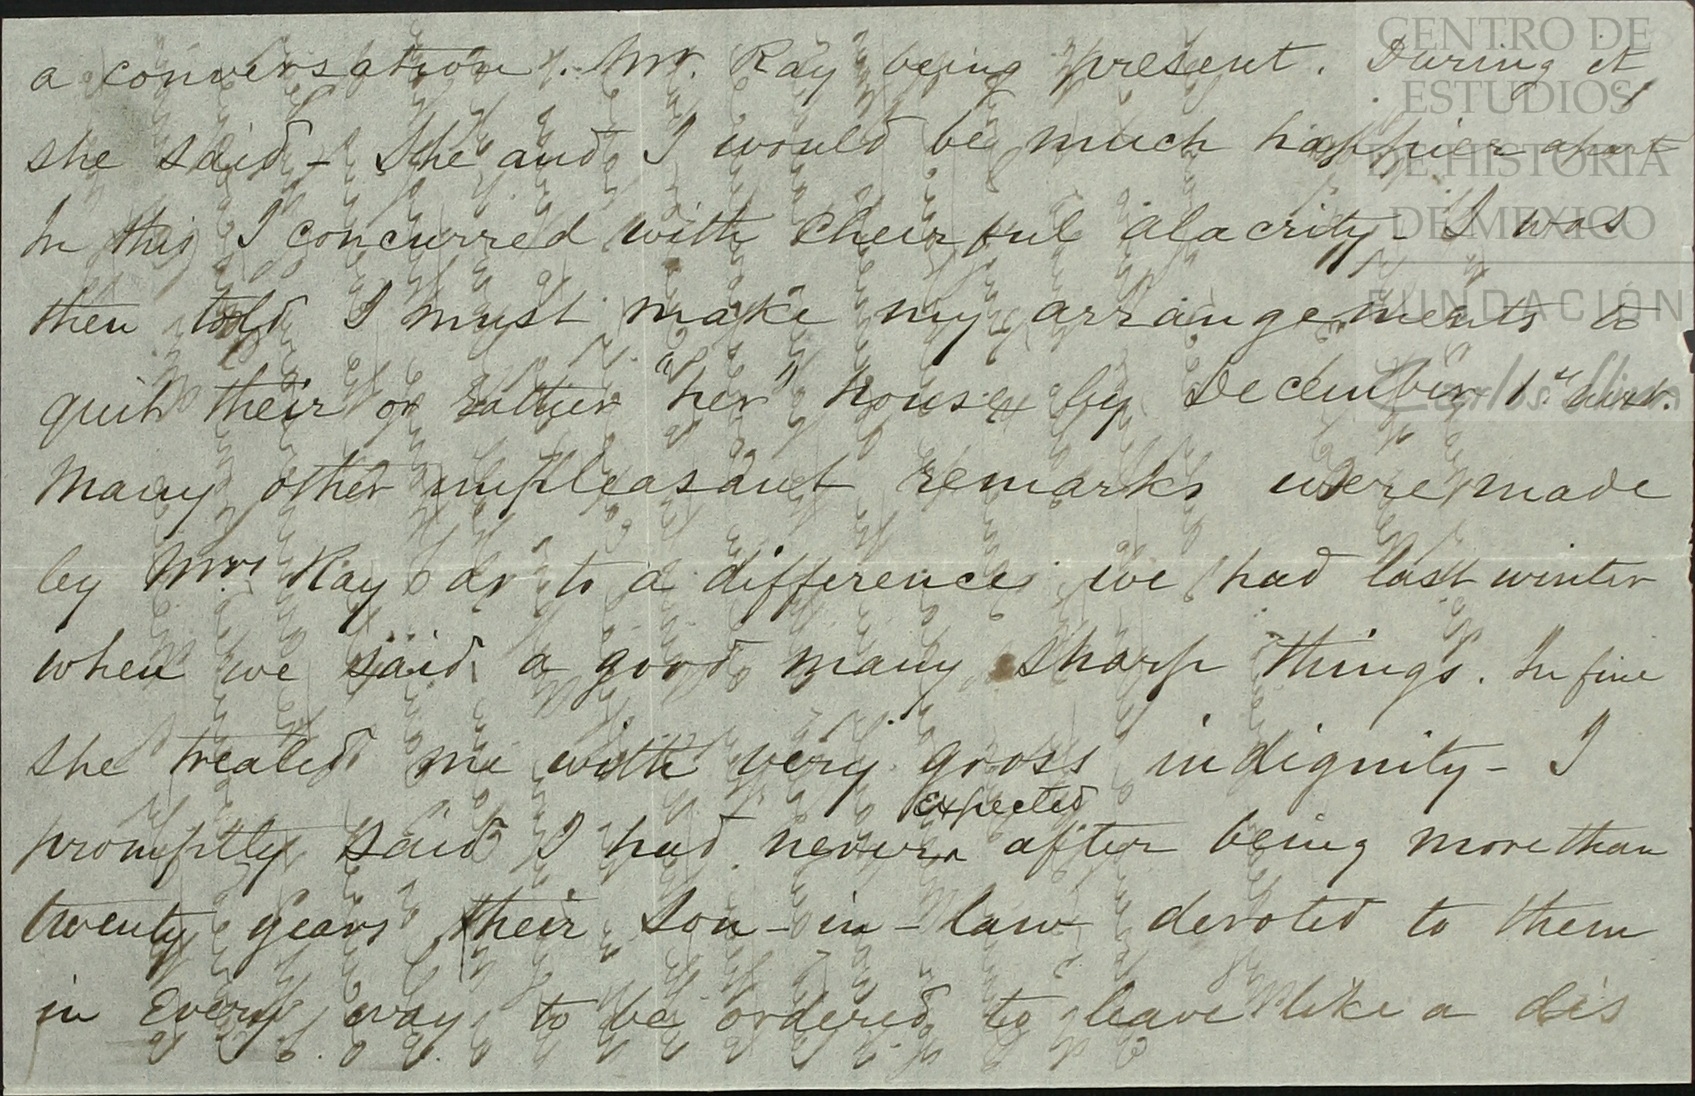 a conversation. Mr. Ray being present. During it
she said - She and I would be much happier apart
In this I concurred with cheirful alacrity - I was
then told I must make my arrangements to
quit their or rather "her" house by December 1st
Many other unpleasant remarks were made
by Mrs Ray as to a difference we had last winter
when we said a good many sharp things. In fine
she treated me with very gross indignity - I
expected
promptly said I had never ^ after being more than
twenty years their son-in-law devoted to them
in every way to be ordered to leave like a dis
CENTRO DE
ESTUDIOS
DE HISTORIA
DE MEXICO
FUNDACIÓN
Carlos Slim